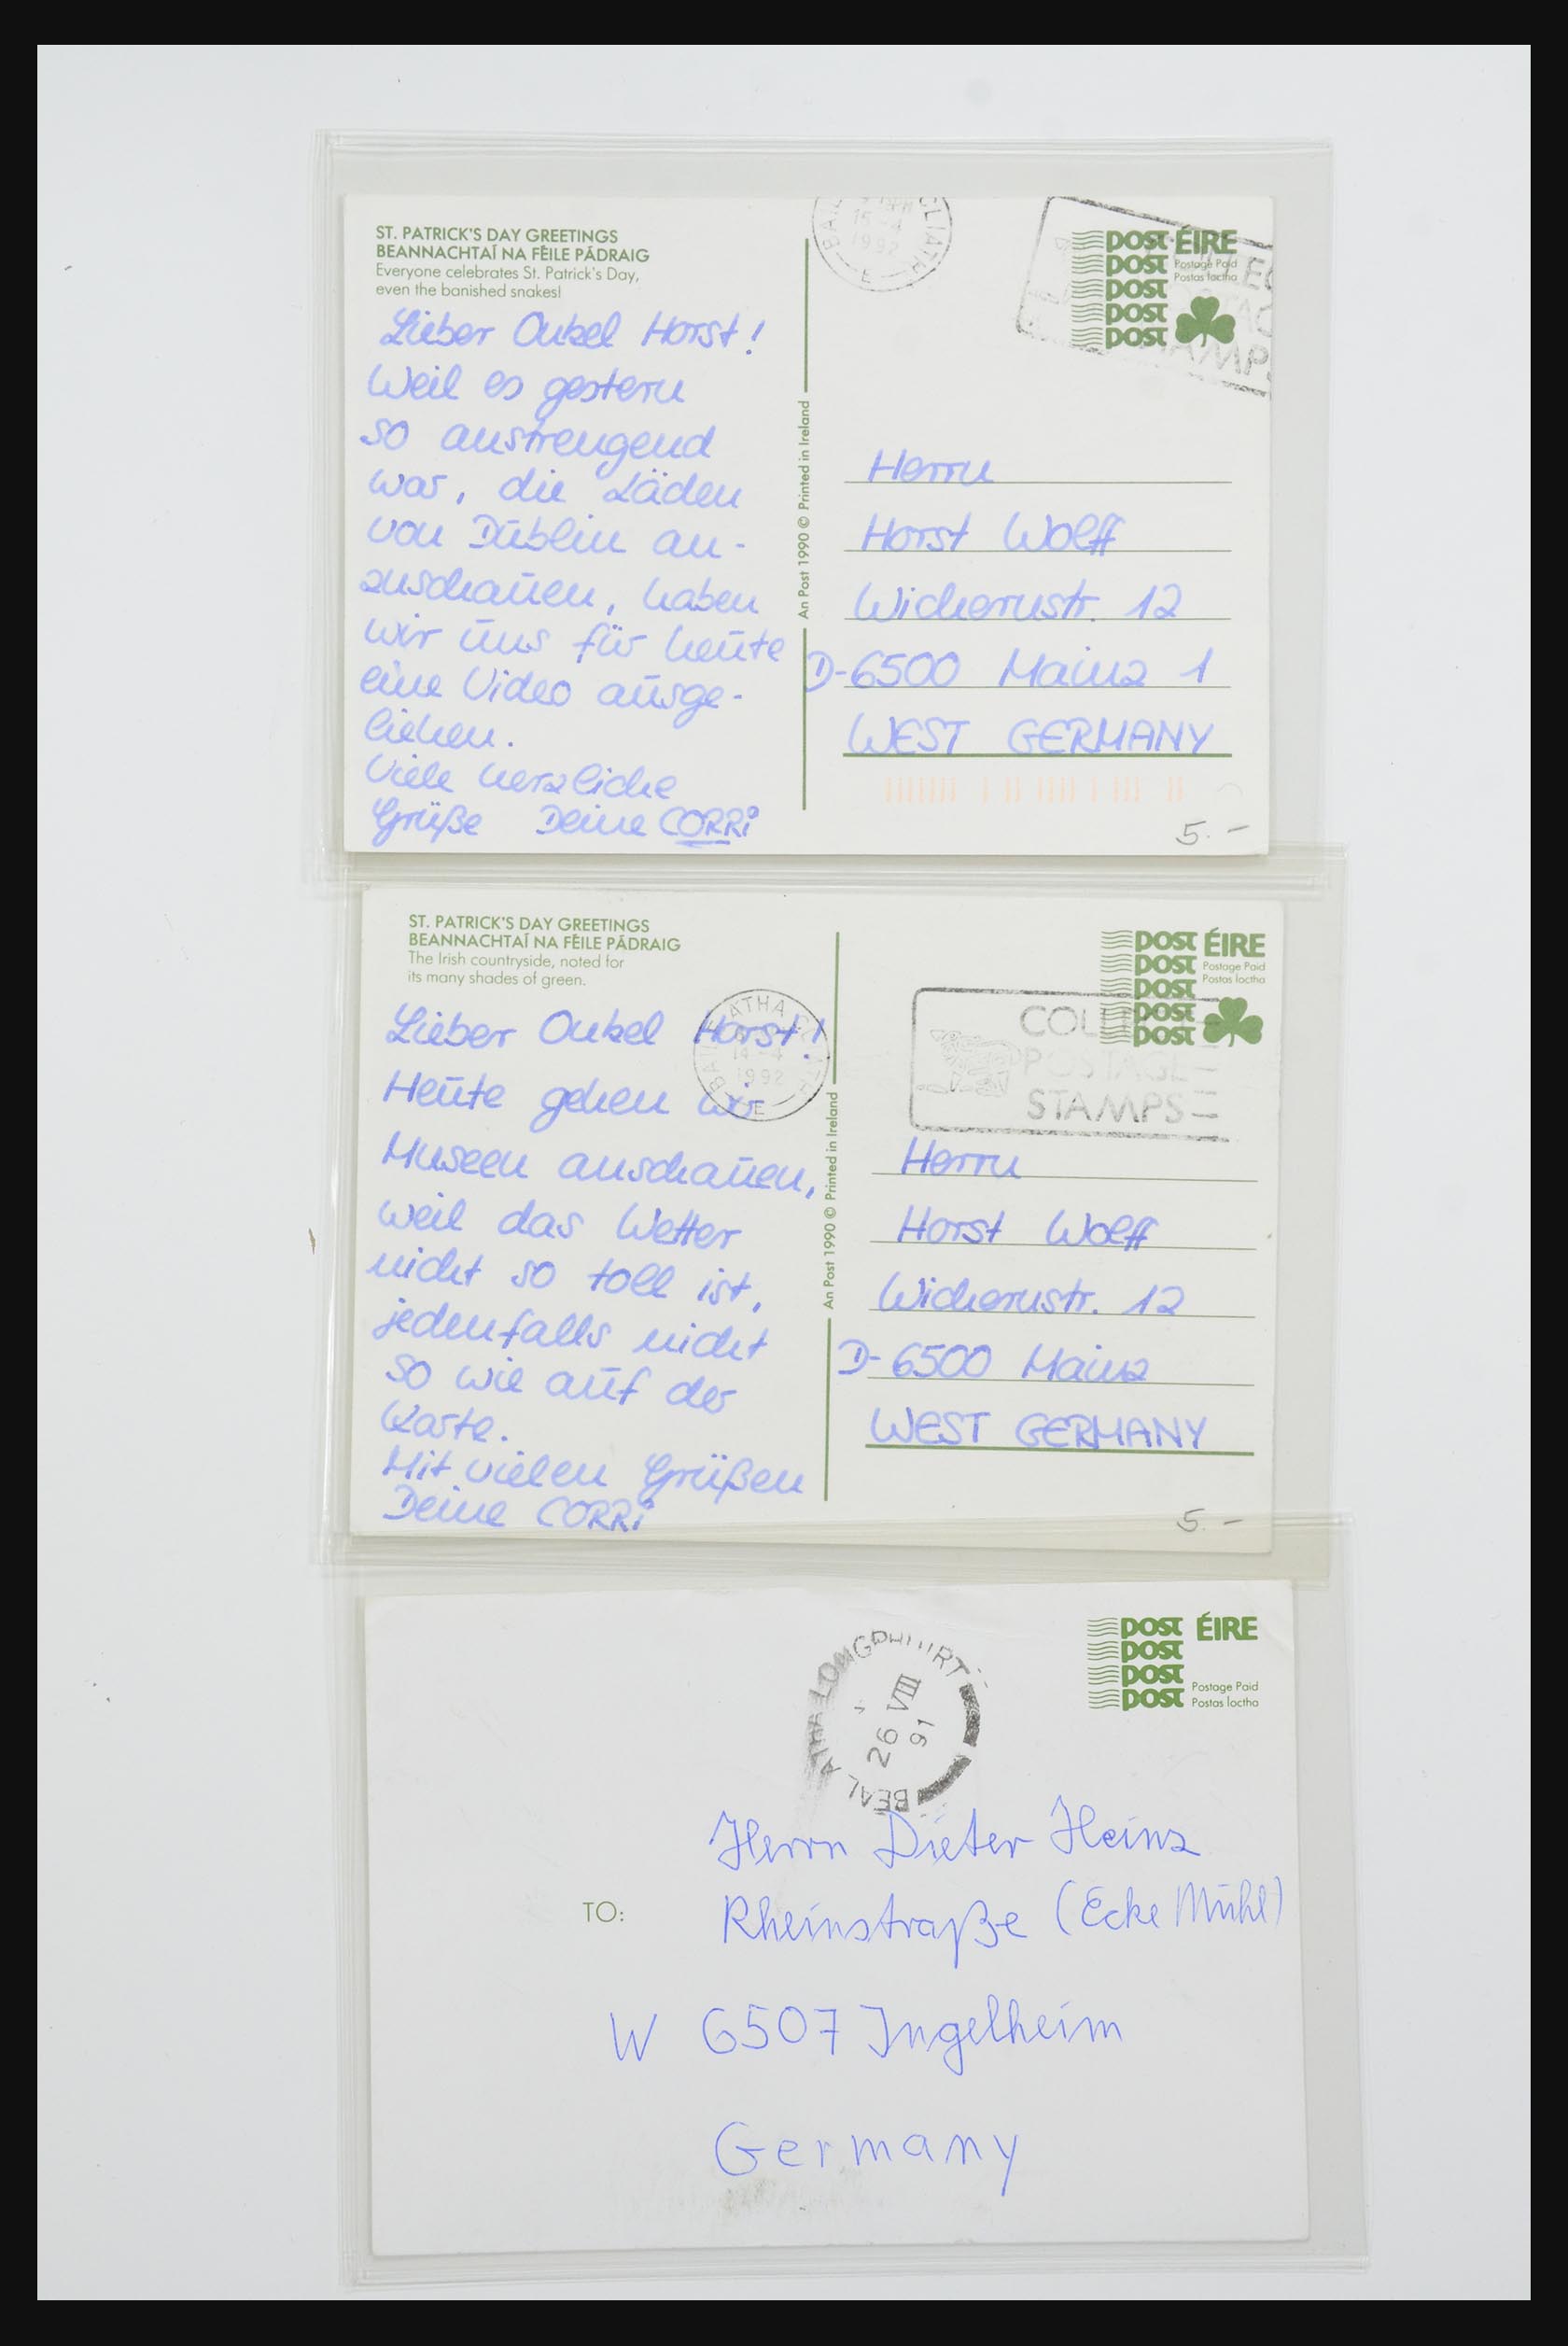 ST. PATRICK'S DAY GREETINGS
BEANNACHTAÍ NA FÉILE PÁDRAIG
Everyone celebrates St. Patrick's Day,
even the banished snakes!
Lieber Onkel Horst!
Weil es gestern
so anstrengend
war, die Läden
von Dublin an-
zuschauen, haben
wir uns für heute
eine Video ausge-
liehen.
Viele herzliche
Grüße Deine CORRi
An Post 1990 © Printed in Ireland
CLIATH
15-4
1992
E
POST ÉIRE
POST Postage Paid
POST Postas Íoctha
POST
POST
Herrn
Horst Wolff
Wichernstr. 12
D-6500 Mainz 1
WEST GERMANY
5.-
ST. PATRICK'S DAY GREETINGS
BEANNACHTAÍ NA FÉILE PÁDRAIG
The Irish countryside, noted for
its many shades of green.
Lieber Onkel Horst!
Heute gehen wir
Museen anschauen,
weil das Wetter
nicht so toll ist,
jedenfalls nicht
so wie auf der
Karte.
Mit vielen Grüßen
Deine CORRi
An Post 1990 © Printed in Ireland
ATHA
14-4
1992
E
POSTAGE
STAMPS
POST ÉIRE
POST Postage Paid
POST Postas Íoctha
POST
POST
Herrn
Horst Wolff
Wichernstr. 12
D-6500 Mainz
WEST GERMANY
5.-
BEAL ATHA LONGPHUIRT
26 VIII
91
POST ÉIRE
POST
POST Postage Paid
POST Postas Íoctha
Herrn Dieter Heinz
TO: Rheinstraße (Ecke Mühl)
W 6507 Ingelheim
Germany